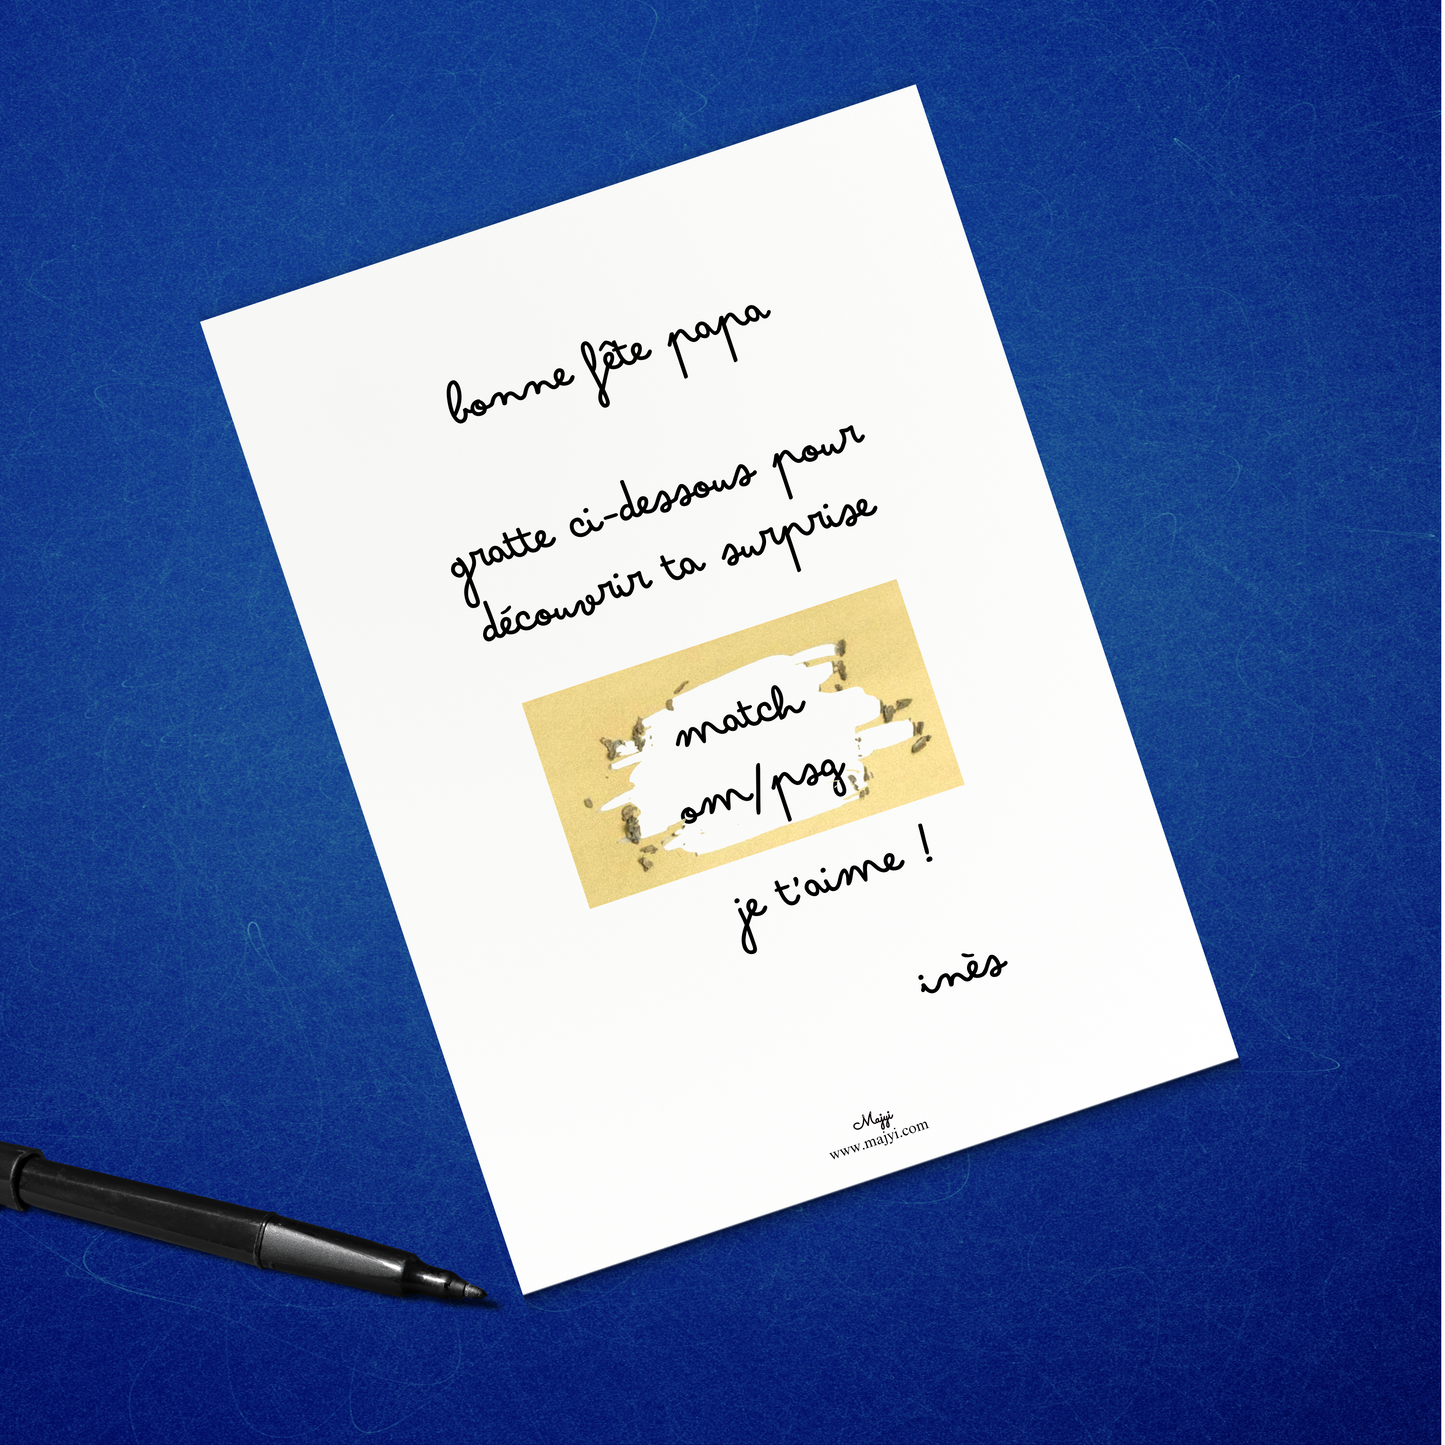 bonne fête papa
gratte ci-dessous pour
découvrir ta surprise
match
om/psg
je t'aime !
inès
Majyi
www.majyi.com